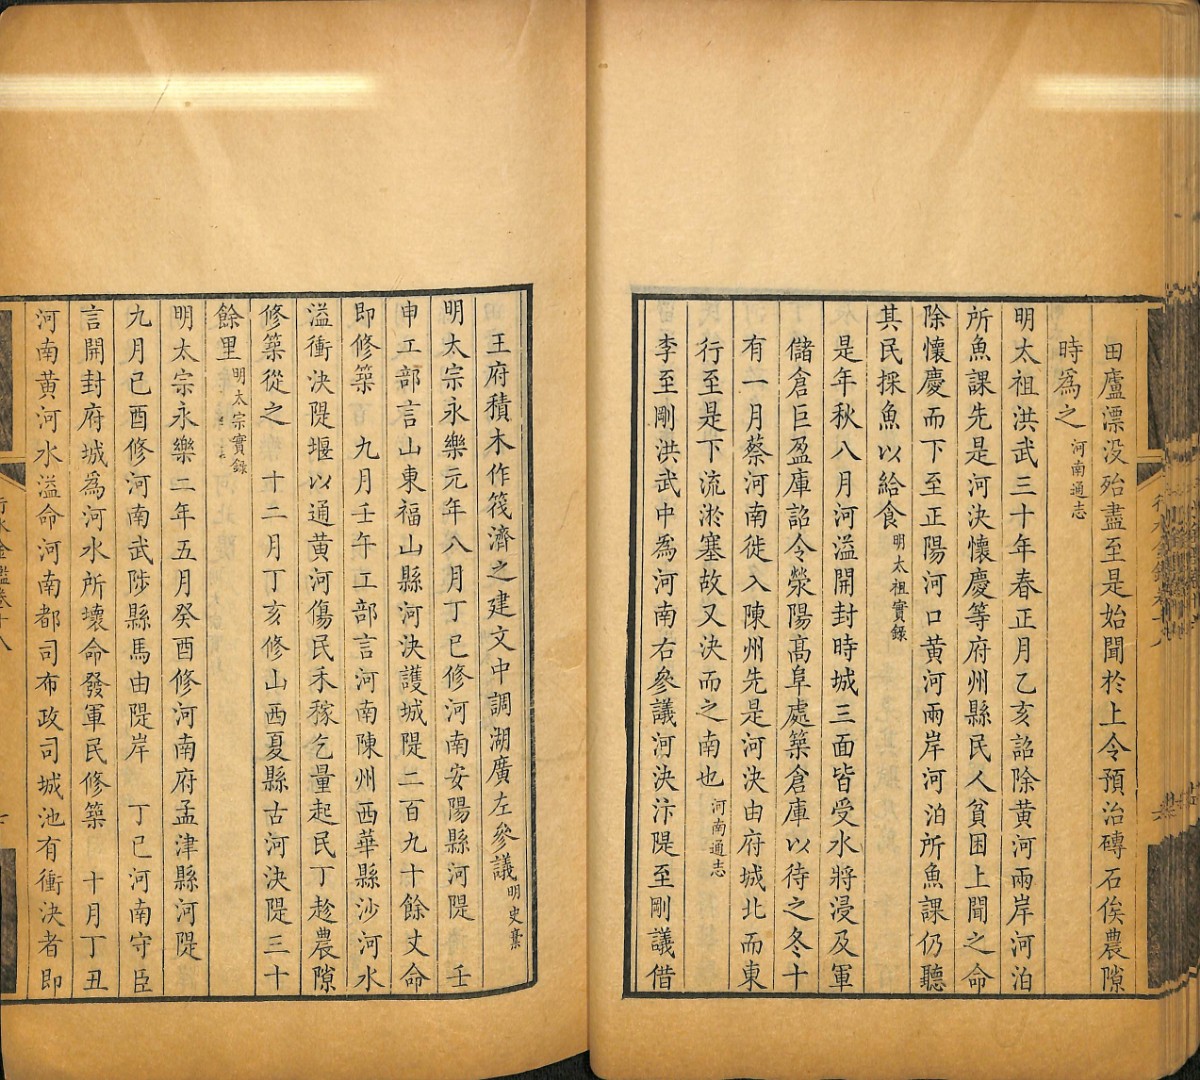 田廬漂没殆盡至是始聞於上令預治磚石俟農隙
時爲之河南通志
明太祖洪武三十年春正月乙亥詔除黄河兩岸河泊
所魚課先是河決懷慶等府州縣民人貧困上聞之命
除懷慶而下至正陽河口黄河兩岸河泊所魚課仍聽
其民採魚以給食明太祖實録
是年秋八月河溢開封時城三面皆受水將浸及軍
儲倉巨盈庫詔令滎陽高阜處築倉庫以待之冬十
有一月蔡河南徙入陳州先是河決由府城北而東
行至是下流淤塞故又決而之南也河南通志
李至剛洪武中為河南右參議河決汴隄至剛議借
王府積木作筏濟之建文中調湖廣左參議明史稾
明太宗永樂元年八月丁巳修河南安陽縣河隄 壬
申工部言山東福山縣河決護城隄二百九十餘丈命
即修築 九月壬午工部言河南陳州西華縣沙河水
溢衝決隄堰以通黄河傷民禾稼乞量起民丁趁農隙
修築從之 十二月丁亥修山西夏縣古河決隄三十
餘里明太宗實録
明太宗永樂二年五月癸酉修河南府孟津縣河隄
九月己酉修河南武陟縣馬由隄岸 丁已河南守臣
言開封府城爲河水所壞命發軍民修築 十月丁丑
河南黄河水溢命河南都司布政司城池有衝決者即
行水金鑑卷十八